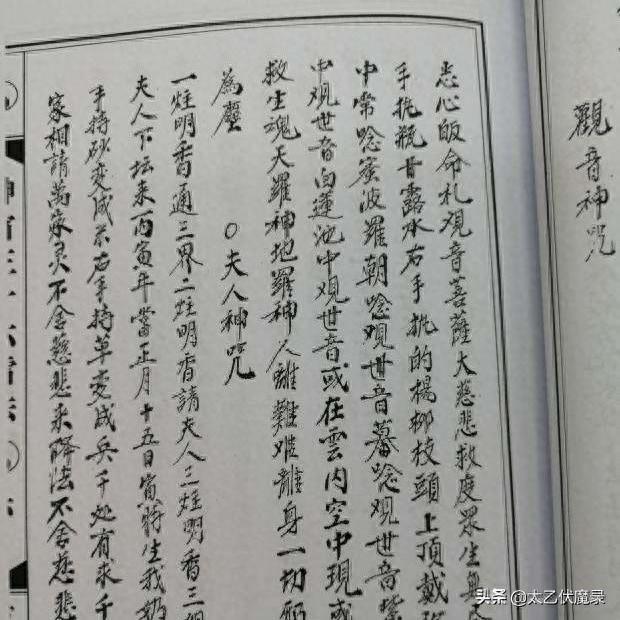 觀音神咒
志心皈命礼观音菩薩大慈悲救度眾生無
手执瓶甘露水右手执的楊柳枝頭上頂戴
中常唸蜜波羅朝唸观世音暮唸观世音
中观世音白蓮池中观世音或在雲内空中現或
救生魂天羅神地羅神人離難难離身一切
為塵
○夫人神咒
一炷明香通三界二炷明香請夫人三炷明香三
夫人下坛来丙寅年當正月十五日寅時生我奶
手持砂变成米右手持草变成兵千处有求千
家相請萬家灵不舍慈悲来降法不舍慈悲
头条 @太乙伏魔录